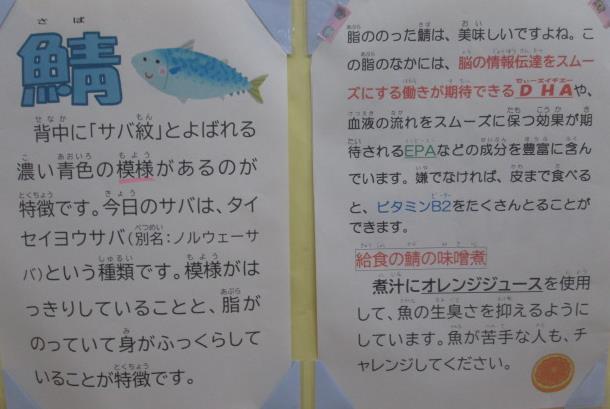 さば
鯖
背中に「サバ紋」とよばれる
濃い青色の模様があるのが
特徴です。今日のサバは、タイ
セイヨウサバ(別名:ノルウェーサ
バ)という種類です。模様がは
っきりしていることと、脂が
のっていて身がふっくらして
いることが特徴です。
脂ののった鯖は、美味しいですよね。こ
の脂のなかには、脳の情報伝達をスムー
ズにする働きが期待できるDHAや、
血液の流れをスムーズに保つ効果が期
待されるEPAなどの成分を豊富に含ん
でいます。嫌でなければ、皮まで食べる
と、ビタミンB2をたくさんとることが
できます。
給食の鯖の味噌煮
煮汁にオレンジジュースを使用
して、魚の生臭さを抑えるように
しています。魚が苦手な人も、チ
ャレンジしてください。